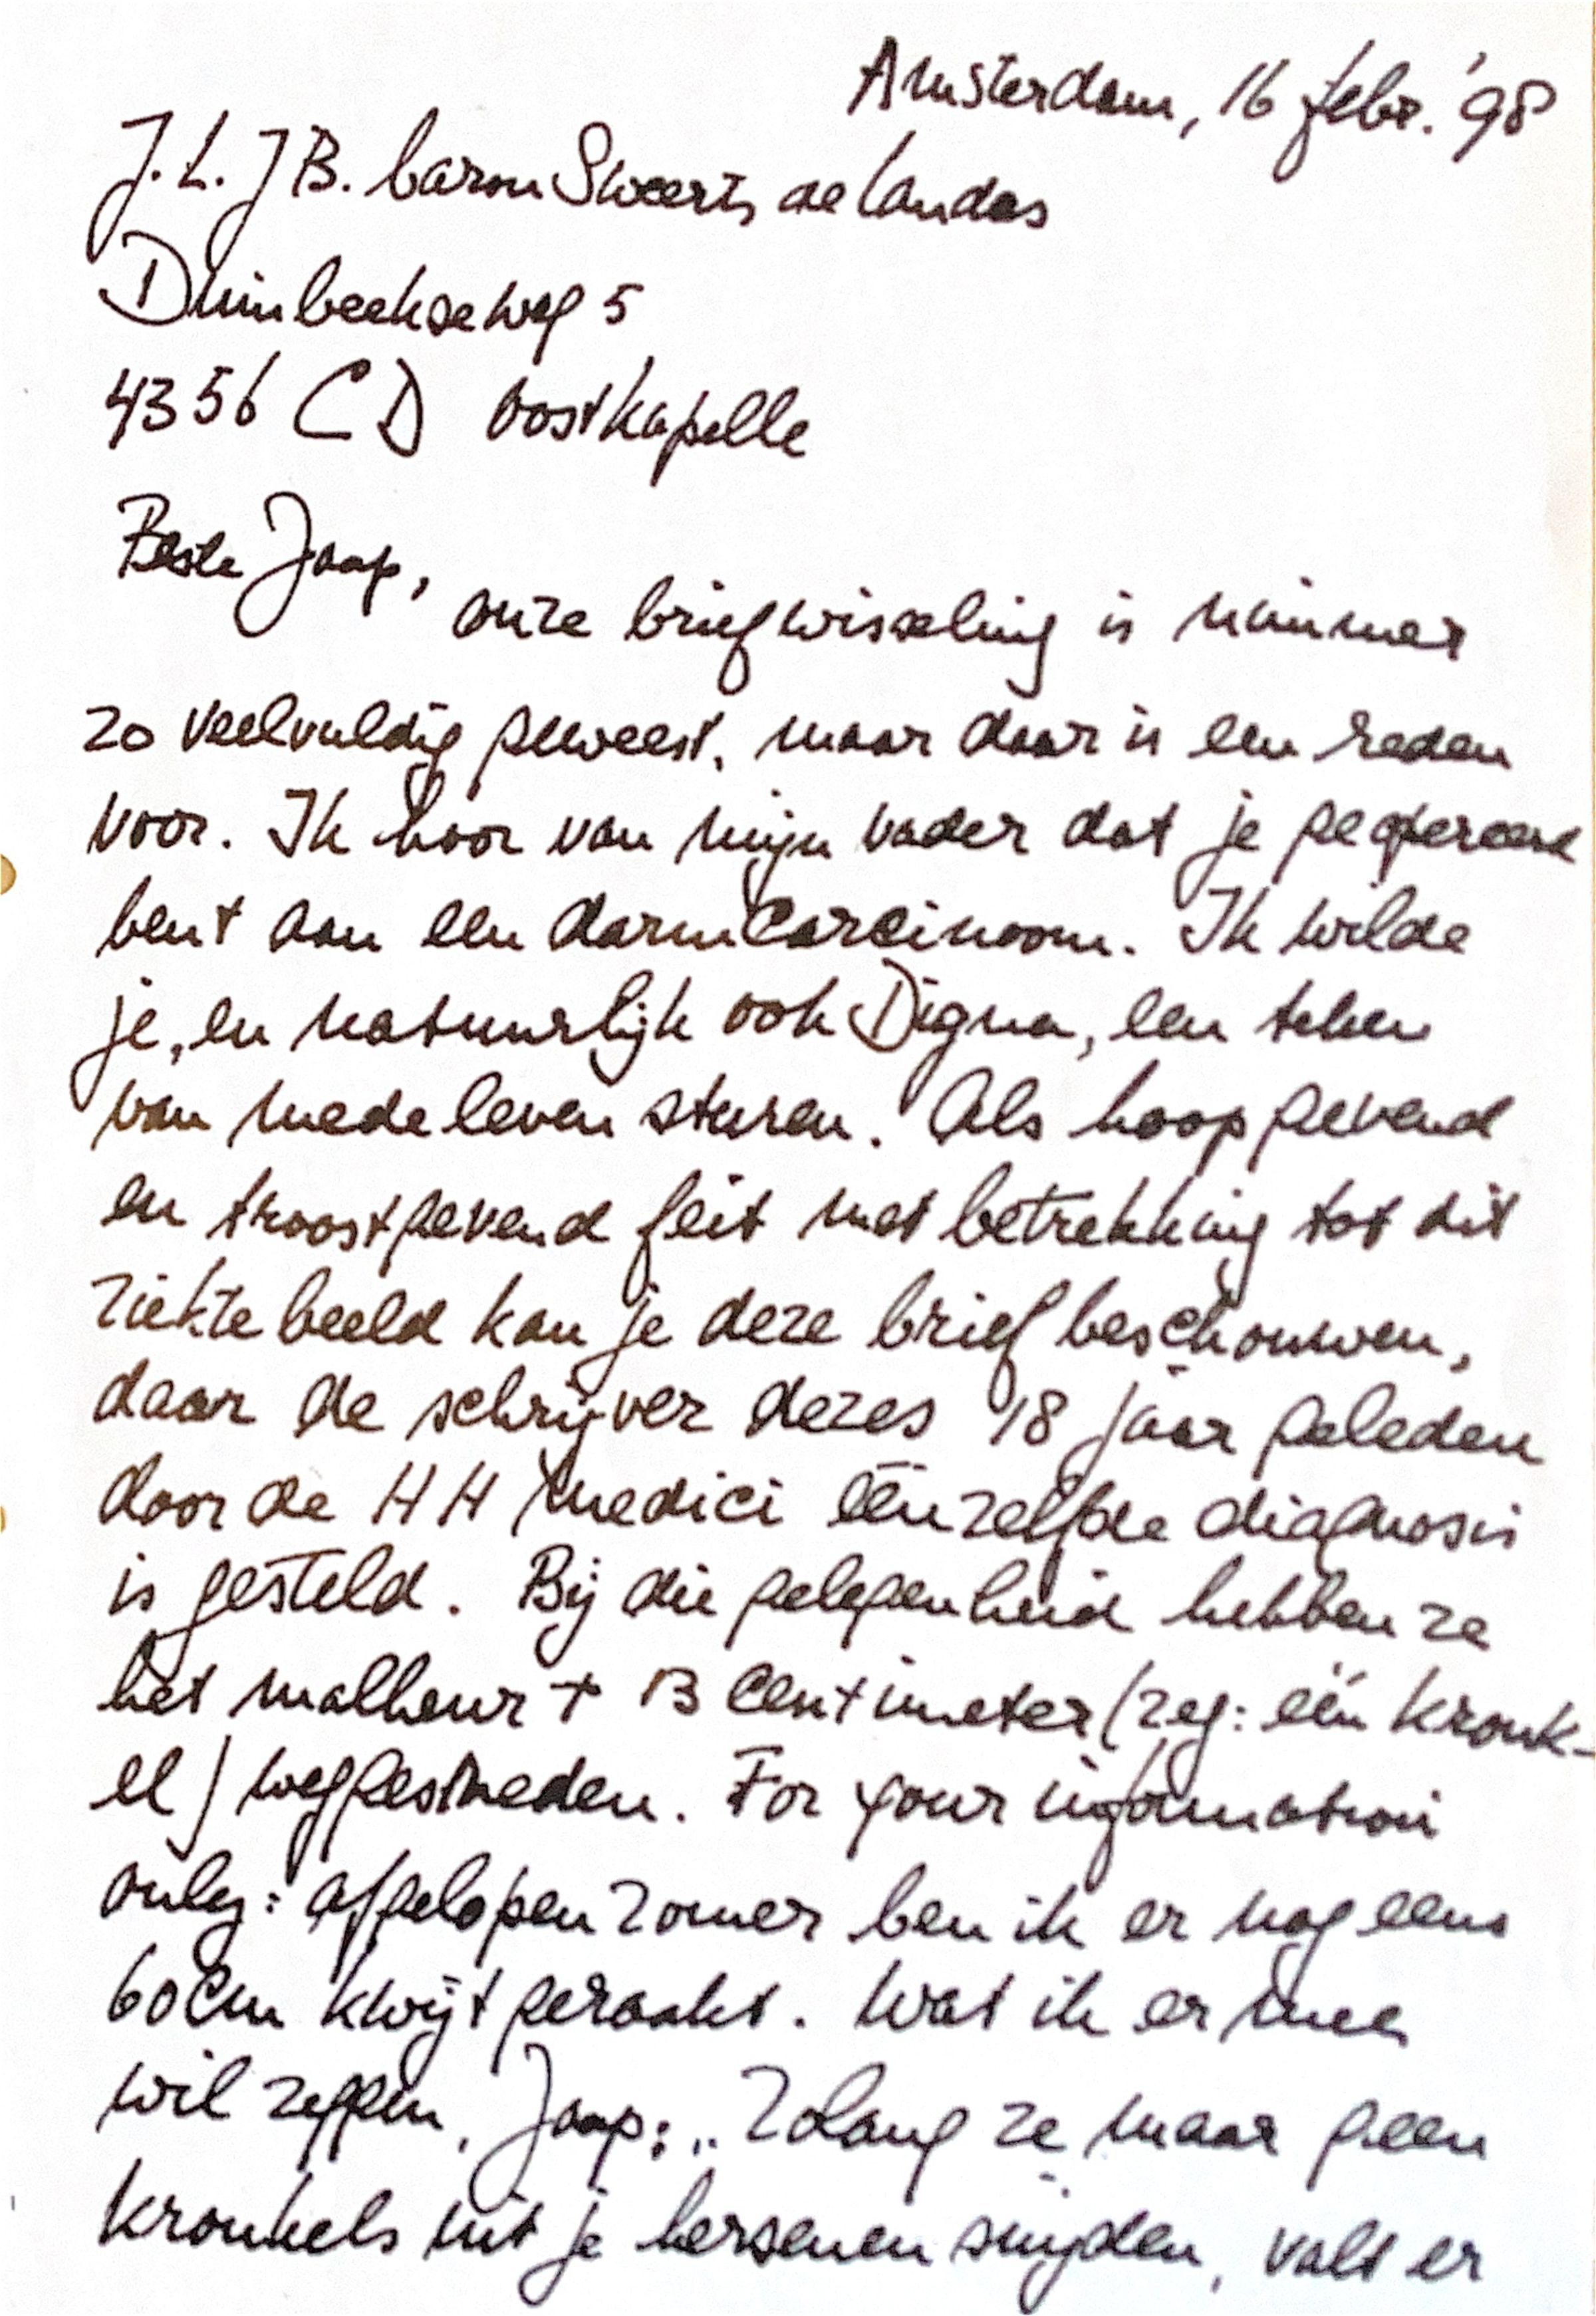 Amsterdam, 16 febr. '98
J.L.J B. baron Sweerts de Landas
Duinbeekseweg 5
4356 CD Oostkapelle
Beste Jaap,
onze briefwisseling is nimmer
zo veelvuldig geweest, maar daar is een reden
voor. Ik hoor van mijn vader dat je geopereerd
bent aan een darmcarcinoom. Ik wilde
je, en natuurlijk ook Digna, een teken
van medeleven sturen. Als hoopgevend
en troostgevend feit met betrekking tot dit
ziektebeeld kan je deze brief beschouwen,
daar de schrijver dezes 18 jaar geleden
door de HH medici éénzelfde diagnosis
is gesteld. Bij die gelegenheid hebben ze
het malheur + 13 centimeter (zeg: één kronk-
el) weggesneden. For your information
only: afgelopen zomer ben ik er nog eens
60cm kwijtgeraakt. Wat ik er mee
wil zeggen, Jaap: „Zolang ze maar geen
kronkels uit je hersenen snijden, valt er